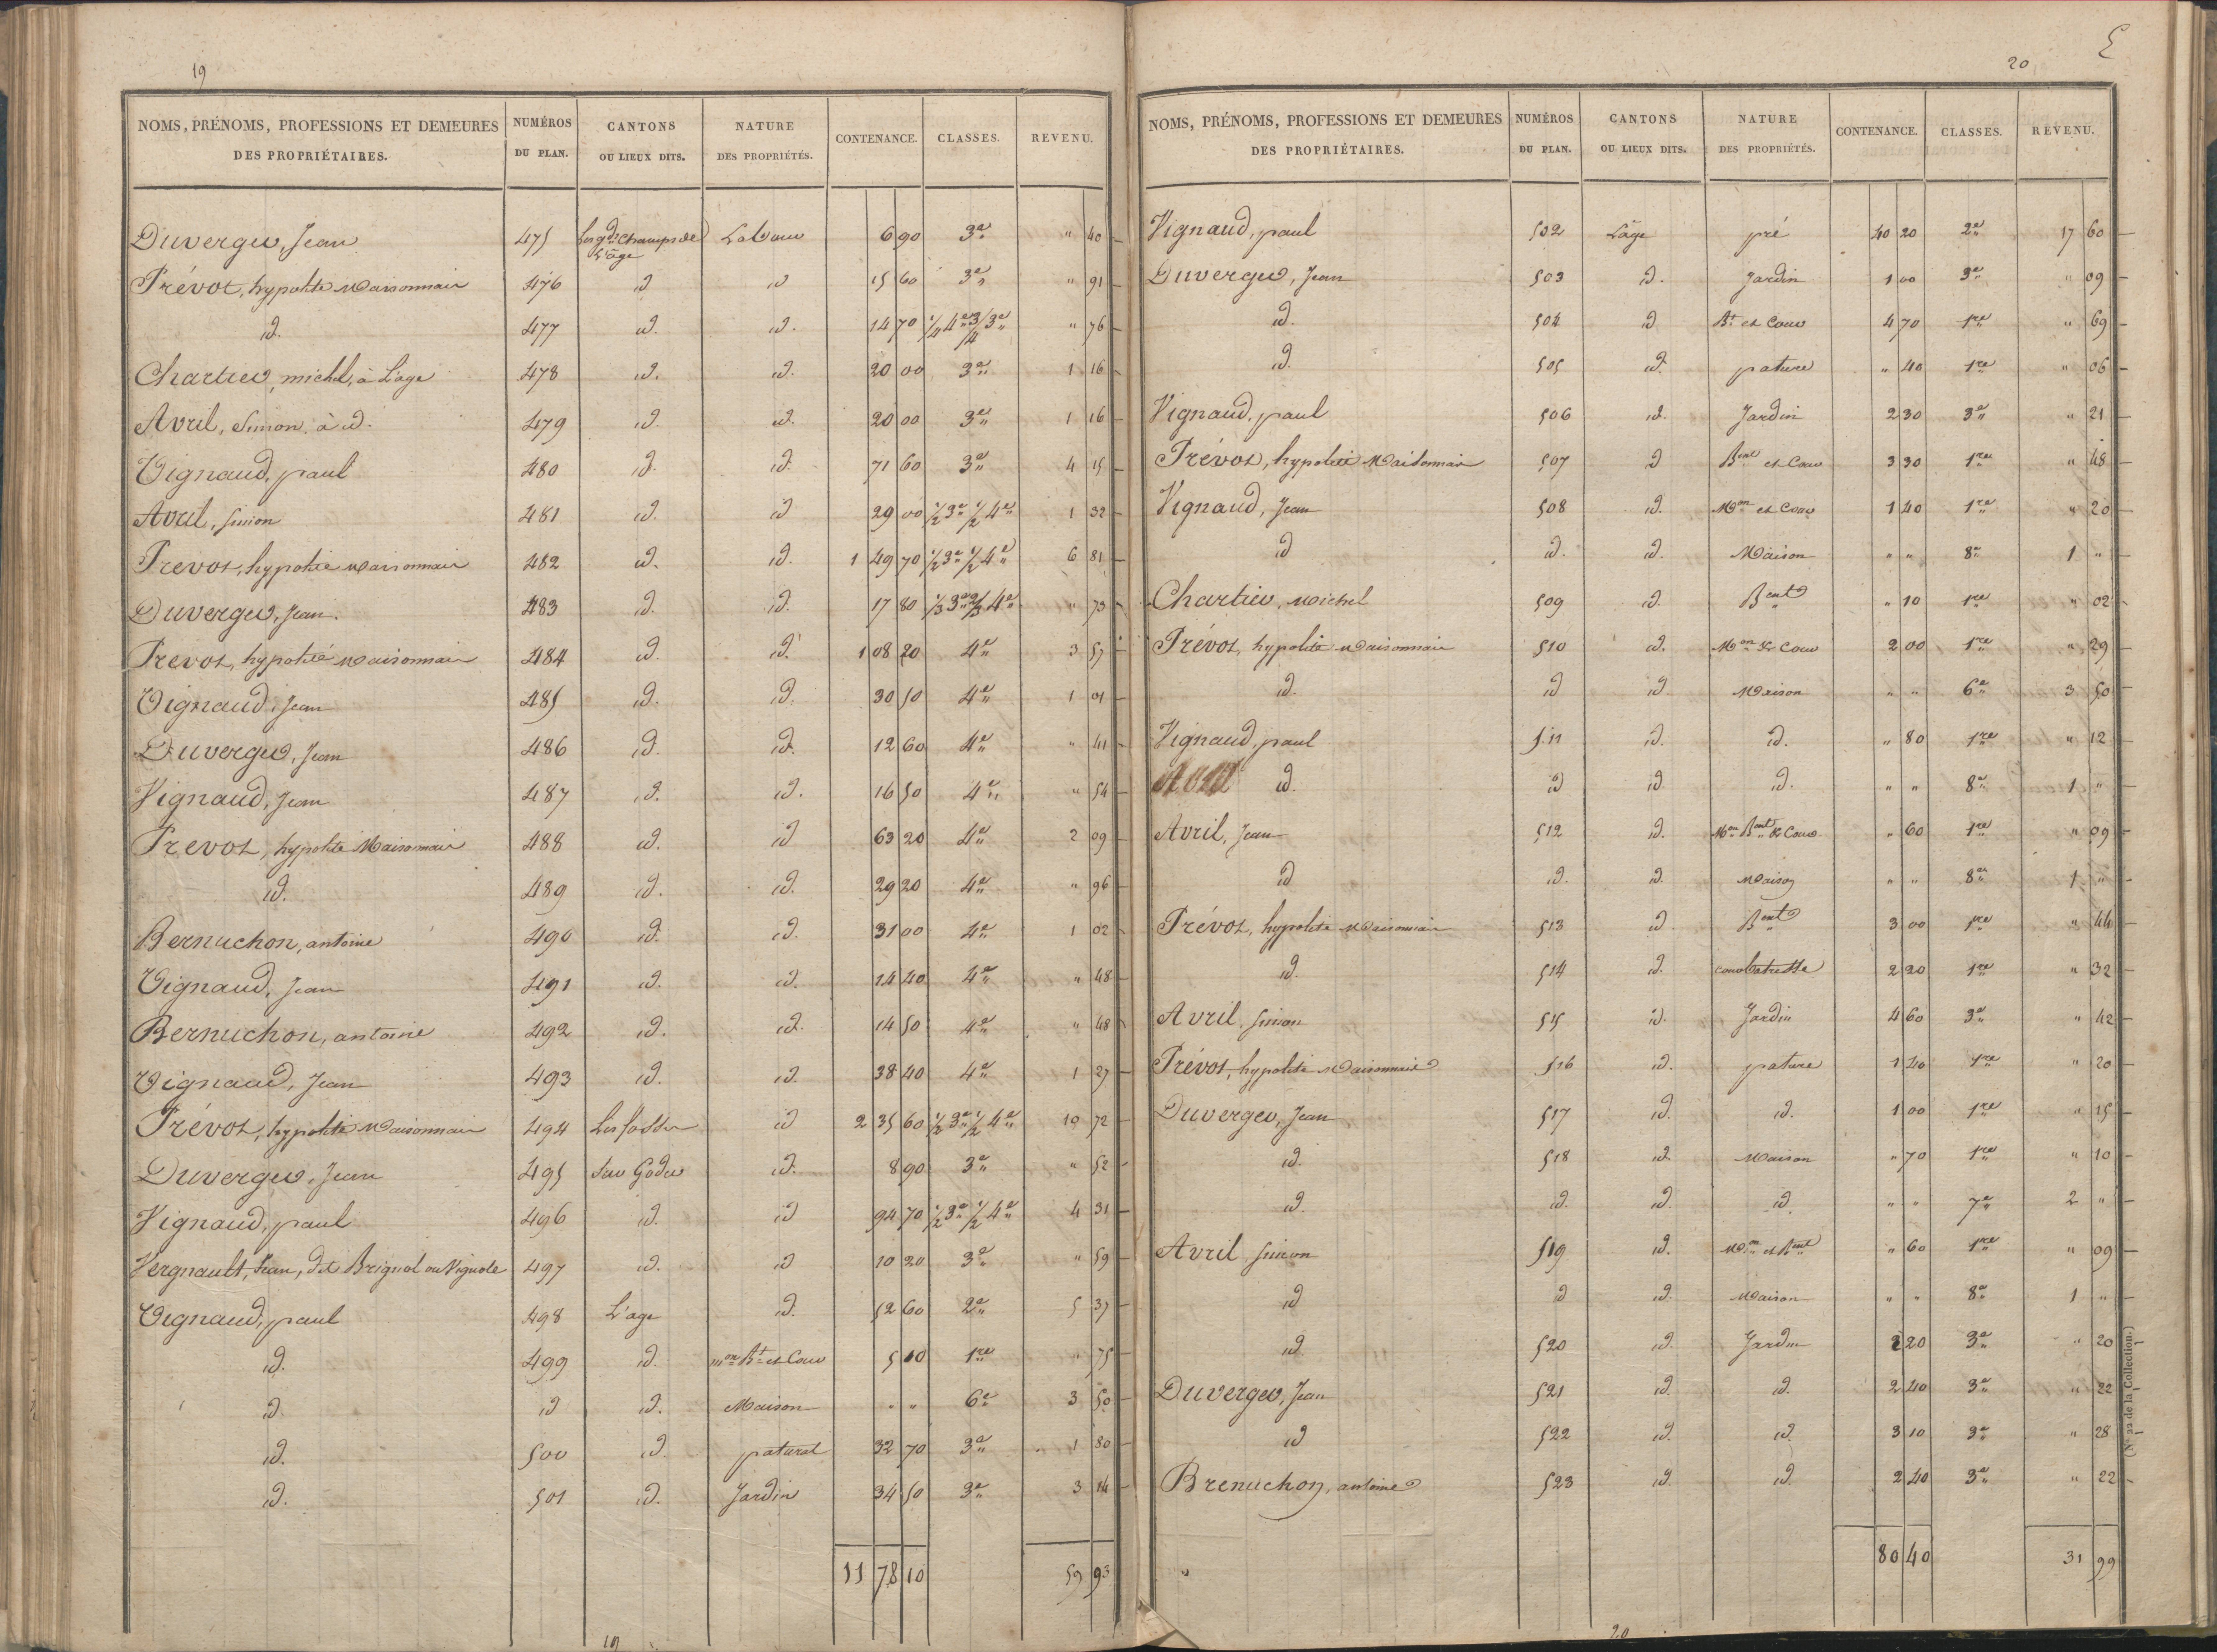 19
NOMS, PRÉNOMS, PROFESSIONS ET DEMEURES DES PROPRIÉTAIRES. NUMÉROS DU PLAN. CANTONS OU LIEUX DITS. NATURE DES PROPRIÉTÉS. CONTENANCE. CLASSES. REVENU.
Duverger, Jean 475 Les gds champs de L'age Labour 6 90 3e " 40
Prévot, hypolite Maisonnais 476 id id 15 60 3e " 91
id. 477 id. id. 14 70 1/4 4e 3/4 3e " 76
Chartier, michel, à L'age 478 id. id. 20 00 3e 1 16
Avril, Simon, à id. 479 id. id. 20 00 3e 1 16
Vignaud, paul 480 id. id. 71 60 3e 4 15
Avril, Simon 481 id. id 29 00 1/2 3e 1/2 4e 1 32
Prevot, hypolite Maisonnais 482 id. id. 1 49 70 1/2 3e 1/2 4e 6 81
Duverger, Jean. 483 id. id. 17 80 1/3 3e 2/3 4e " 73
Prevot, hypolite Maisonnais 484 id. id. 1 08 20 4e 3 57
Vignaud, Jean 485 id. id. 30 50 4e 1 01
Duverger, Jean 486 id. id. 12 60 4e " 41
Vignaud, Jean 487 id. id. 16 50 4e " 54
Prevot, hypolite Maisonnais 488 id. id 63 20 4e 2 09
id. 489 id. id. 29 20 4e " 96
Bernuchon, antoine 490 id. id. 31 00 4e 1 02
Vignaud, Jean 491 id. id. 14 40 4e " 48
Bernuchon, antoine 492 id. id. 14 50 4e " 48
Vignaud, Jean 493 id. id. 38 40 4e 1 27
Prévot, hypolite Maisonnais 494 Les fosses id 2 35 60 1/2 3e 1/2 4e 10 72
Duverger, Jean 495 id. 8 90 3e " 52
Vignaud, paul 496 id. id 94 70 1/2 3e 1/2 4e 4 31
Vergnault, Jean, dit Brignol ou Vignole 497 id. id 10 20 3e " 59
Vignaud, paul 498 L'age id. 52 60 2e 5 37
id. 499 id. mon Bt et Cour 5 10 1re " 75
id. id id. Maison " " 6e 3 50
id. 500 id. patural 32 70 3e 1 80
id. 501 id. Jardin 34 50 3e 3 14
11 78 10 59 93
19
20
NOMS, PRÉNOMS, PROFESSIONS ET DEMEURES DES PROPRIÉTAIRES. NUMÉROS DU PLAN. CANTONS OU LIEUX DITS. NATURE DES PROPRIÉTÉS. CONTENANCE. CLASSES. REVENU.
Vignaud, paul 502 L'age pré 40 20 2e 17 60
Duverger, Jean 503 id. Jardin 1 00 3e " 09
id. 504 id Bt et Cour 4 70 1re " 69
id. 505 id. pature " 40 1re " 06
Vignaud, paul 506 id. Jardin 2 30 3e " 21
Prévot, hypolite Maisonnais 507 id Bent et Cour 3 30 1re " 48
Vignaud, Jean 508 id. Mon et Cour 1 40 1re " 20
id id. id. Maison " " 8e 1 "
Chartier, Michel 509 id. Bent " 10 1re " 02
Prévot, hypolite Maisonnais 510 id. Mon & Cour 2 00 1re " 29
id. id id. Maison " " 6e 3 50
Vignaud, paul 511 id. id. " 80 1re " 12
id. id id. id. " " 8e 1 "
Avril, Jean 512 id. Mon Bent & Cour " 60 1re " 09
id id. id. Maison " " 8e 1 "
Prévot, hypolite Maisonnais 513 id. Bent 3 00 1re " 44
id. 514 id. 2 20 1re " 32
Avril, Simon 515 id. Jardin 4 60 3e " 42
Prévot, hypolite Maisonnais 516 id. pature 1 40 1re " 20
Duverger, Jean 517 id. id. 1 00 1re " 15
id. 518 id. Maison " 70 1re " 10
id. id. id. id. " " 7e 2 "
Avril Simon 519 id. Mon et Bent " 60 1re " 09
id id id. Maison " " 8e 1 "
id. 520 id. Jardin 2 20 3e " 20
Duverger, Jean 521 id. id. 2 40 3e " 22
id 522 id. id. 3 10 3e " 28
Brenuchon, antoine 523 id. id. 2 40 3e " 22
80 40 31 99
(N° 22 de la Collection.)
20